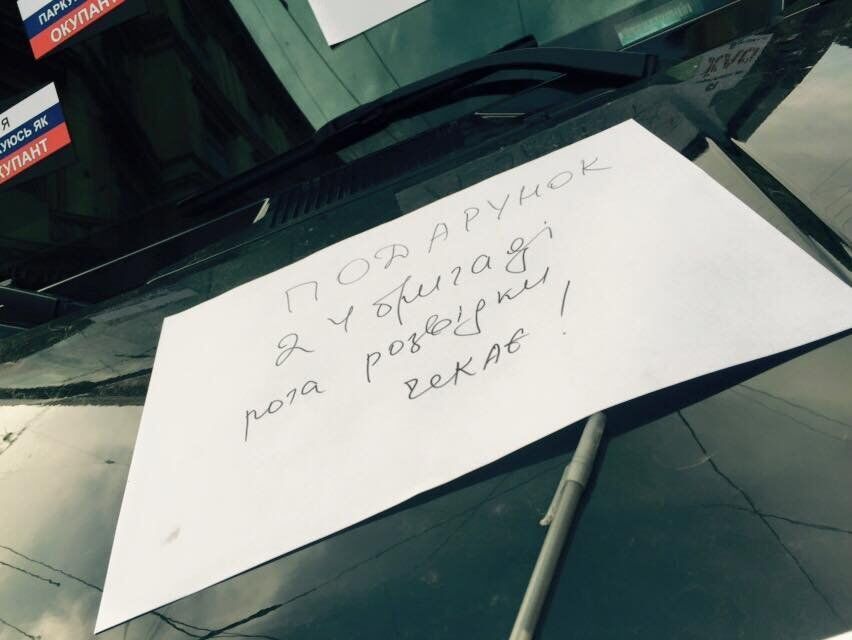 ПАРКУ
ОКУПАНТ
Я
УЮСЬ ЯК
КУПАНТ
ПОДАРУНОК
24 бригаді
рота розвідки
чекає!